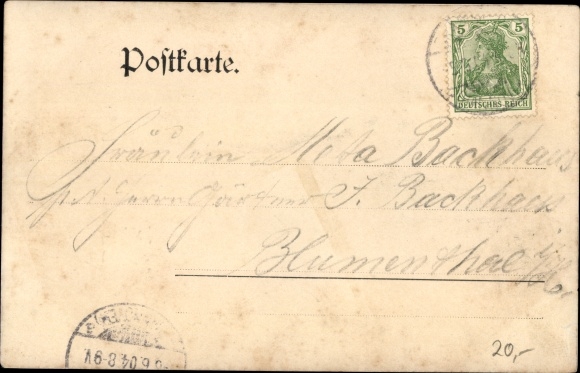 5 5
DEUTSCHES REICH
Postkarte.
Fräulein Meta Backhaus
Herrn Gärtner J. Backhaus
Blumenthal
6.04.8-9V
20,-